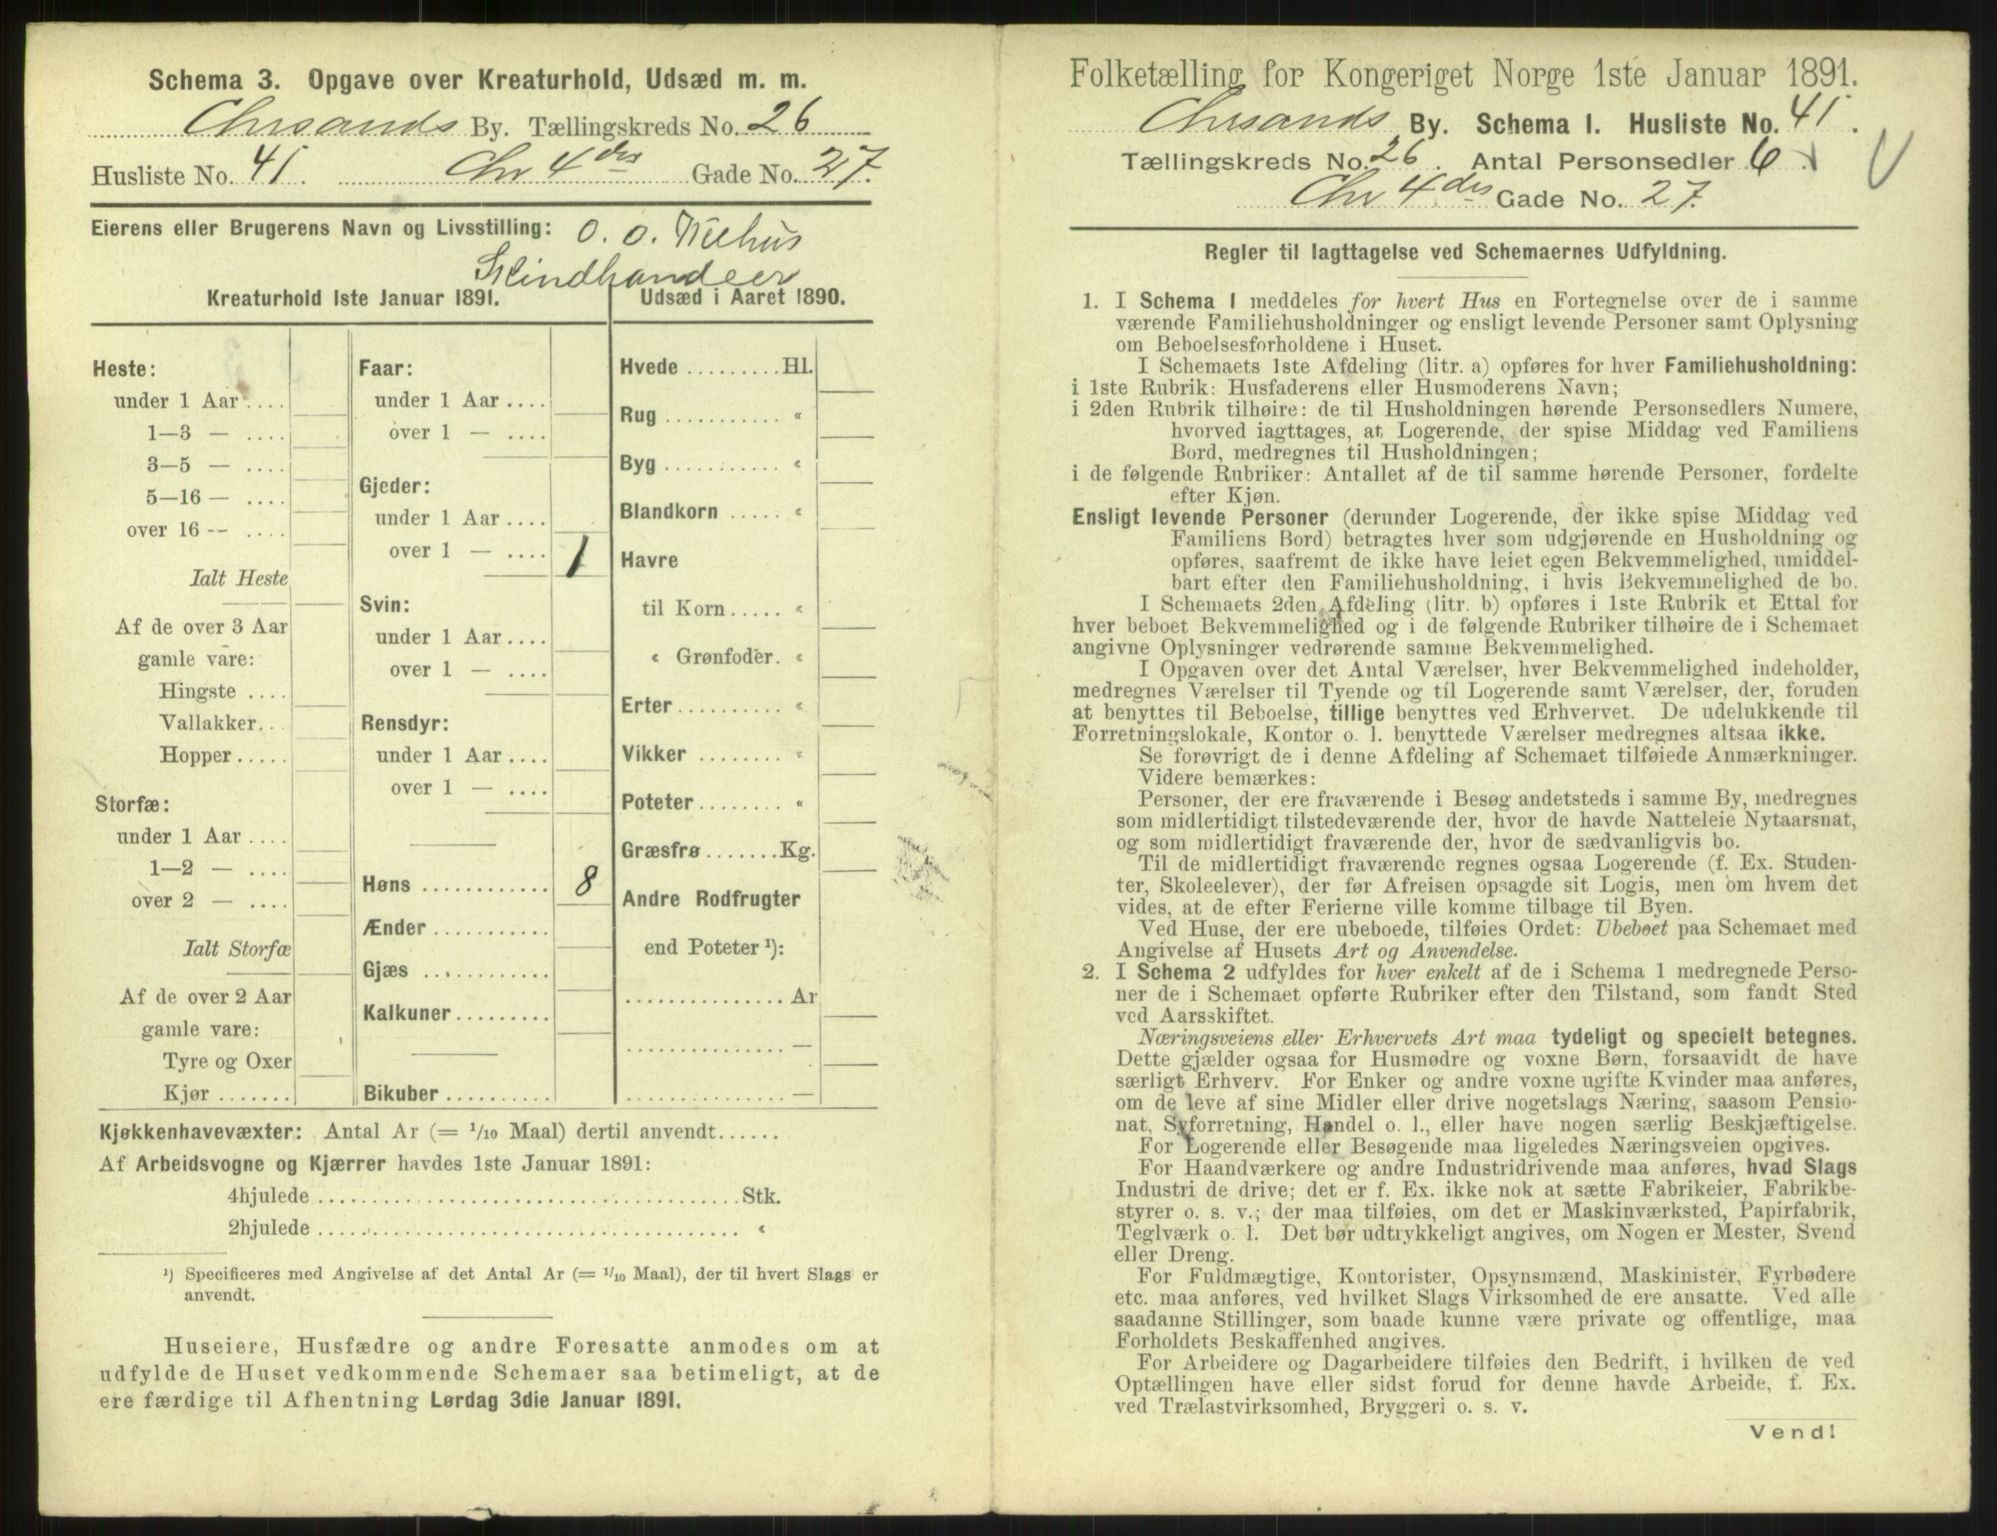 Schema 3. Opgave over Kreaturhold, Udsæd m. m.
Chrsands By. Tællingskreds No. 26
Husliste No. 41. Chr 4des Gade No. 27.
Eierens eller Brugerens Navn og Livsstilling: O. O.
Skindhandler
Kreaturhold 1ste Januar 1891.
Heste:
under 1 Aar ....
1—3 — ....
3—5 — ....
5—16 — ....
over 16 -- ....
Ialt Heste
Af de over 3 Aar
gamle vare:
Hingste ....
Vallakker...
Hopper.....
Storfæ:
under 1 Aar ....
1—2 — ....
over 2 — ....
Ialt Storfæ
Af de over 2 Aar
gamle vare:
Tyre og Oxer
Kjør .......
Faar:
under 1 Aar ....
over 1 — ....
Gjeder:
under 1 Aar ....
over 1 — .... 1
Svin:
under 1 Aar ....
over 1 — ....
Rensdyr:
under 1 Aar ....
over 1 — ....
Høns ............ 8
Ænder ...........
Gjæs ............
Kalkuner.........
Bikuber ..........
Udsæd i Aaret 1890.
Hvede .........Hl.
Rug ........... «
Byg ........... «
Blandkorn ..... «
Havre
til Korn..... «
« Grønfoder. «
Erter.......... «
Vikker ........ «
Poteter........ «
Græsfrø.......Kg.
Andre Rodfrugter
end Poteter ¹):
...............Ar
............... —
............... —
Kjøkkenhavevæxter: Antal Ar (= 1/10 Maal) dertil anvendt......
Af Arbeidsvogne og Kjærrer havdes 1ste Januar 1891:
4hjulede .......................................Stk.
2hjulede ....................................... «
¹) Specificeres med Angivelse af det Antal Ar (= 1/10 Maal), der til hvert Slags er
anvendt.
Huseiere, Husfædre og andre Foresatte anmodes om at
udfylde de Huset vedkommende Schemaer saa betimeligt, at de
ere færdige til Afhentning Lørdag 3die Januar 1891.
Folketælling for Kongeriget Norge 1ste Januar 1891.
Chrsands By. Schema 1. Husliste No. 41.
Tællingskreds No. 26. Antal Personsedler 6.
Chr 4des Gade No. 27.
Regler til Iagttagelse ved Schemaernes Udfyldning.
1. I Schema 1 meddeles for hvert Hus en Fortegnelse over de i samme
værende Familiehusholdninger og ensligt levende Personer samt Oplysning
om Beboelsesforholdene i Huset.
I Schemaets 1ste Afdeling (litr. a) opføres for hver Familiehusholdning:
i 1ste Rubrik: Husfaderens eller Husmoderens Navn;
i 2den Rubrik tilhøire: de til Husholdningen hørende Personsedlers Numere,
hvorved iagttages, at Logerende, der spise Middag ved Familiens
Bord, medregnes til Husholdningen;
i de følgende Rubriker: Antallet af de til samme hørende Personer, fordelte
efter Kjøn.
Ensligt levende Personer (derunder Logerende, der ikke spise Middag ved
Familiens Bord) betragtes hver som udgjørende en Husholdning og
opføres, saafremt de ikke have leiet egen Bekvemmelighed, umiddel-
bart efter den Familiehusholdning, i hvis Bekvemmelighed de bo.
I Schemaets 2den Afdeling (litr. b) opføres i 1ste Rubrik et Ettal for
hver beboet Bekvemmelighed og i de følgende Rubriker tilhøire de i Schemaet
angivne Oplysninger vedrørende samme Bekvemmelighed.
I Opgaven over det Antal Værelser, hver Bekvemmelighed indeholder,
medregnes Værelser til Tyende og til Logerende samt Værelser, der, foruden
at benyttes til Beboelse, tillige benyttes ved Erhvervet. De udelukkende til
Forretningslokale, Kontor o. l. benyttede Værelser medregnes altsaa ikke.
Se forøvrigt de i denne Afdeling af Schemaet tilføiede Anmærkninger.
Videre bemærkes:
Personer, der ere fraværende i Besøg andetsteds i samme By, medregnes
som midlertidigt tilstedeværende der, hvor de havde Natteleie Nytaarsnat,
og som midlertidigt fraværende der, hvor de sædvanligvis bo.
Til de midlertidigt fraværende regnes ogsaa Logerende (f. Ex. Studen-
ter, Skoleelever), der før Afreisen opsagde sit Logis, men om hvem det
vides, at de efter Ferierne ville komme tilbage til Byen.
Ved Huse, der ere ubeboede, tilføies Ordet: Ubeboet paa Schemaet med
Angivelse af Husets Art og Anvendelse.
2. I Schema 2 udfyldes for hver enkelt af de i Schema 1 medregnede Perso-
ner de i Schemaet opførte Rubriker efter den Tilstand, som fandt Sted
ved Aarsskiftet.
Næringsveiens eller Erhvervets Art maa tydeligt og specielt betegnes.
Dette gjælder ogsaa for Husmødre og voxne Børn, forsaavidt de have
særligt Erhverv. For Enker og andre voxne ugifte Kvinder maa anføres,
om de leve af sine Midler eller drive nogetslags Næring, saasom Pensio-
nat, Syforretning, Handel o. l., eller have nogen særlig Beskjæftigelse.
For Logerende eller Besøgende maa ligeledes Næringsveien opgives.
For Haandværkere og andre Industridrivende maa anføres, hvad Slags
Industri de drive; det er f. Ex. ikke nok at sætte Fabrikeier, Fabrikbe-
styrer o. s. v.; der maa tilføies, om det er Maskinværksted, Papirfabrik,
Teglværk o. l. Det bør udtrykkeligt angives, om Nogen er Mester, Svend
eller Dreng.
For Fuldmægtige, Kontorister, Opsynsmænd, Maskinister, Fyrbødere
etc. maa anføres, ved hvilket Slags Virksomhed de ere ansatte. Ved alle
saadanne Stillinger, som baade kunne være private og offentlige, maa
Forholdets Beskaffenhed angives.
For Arbeidere og Dagarbeidere tilføies den Bedrift, i hvilken de ved
Optællingen have eller sidst forud for denne havde Arbeide, f. Ex.
ved Trælastvirksomhed, Bryggeri o. s. v.
Vend!